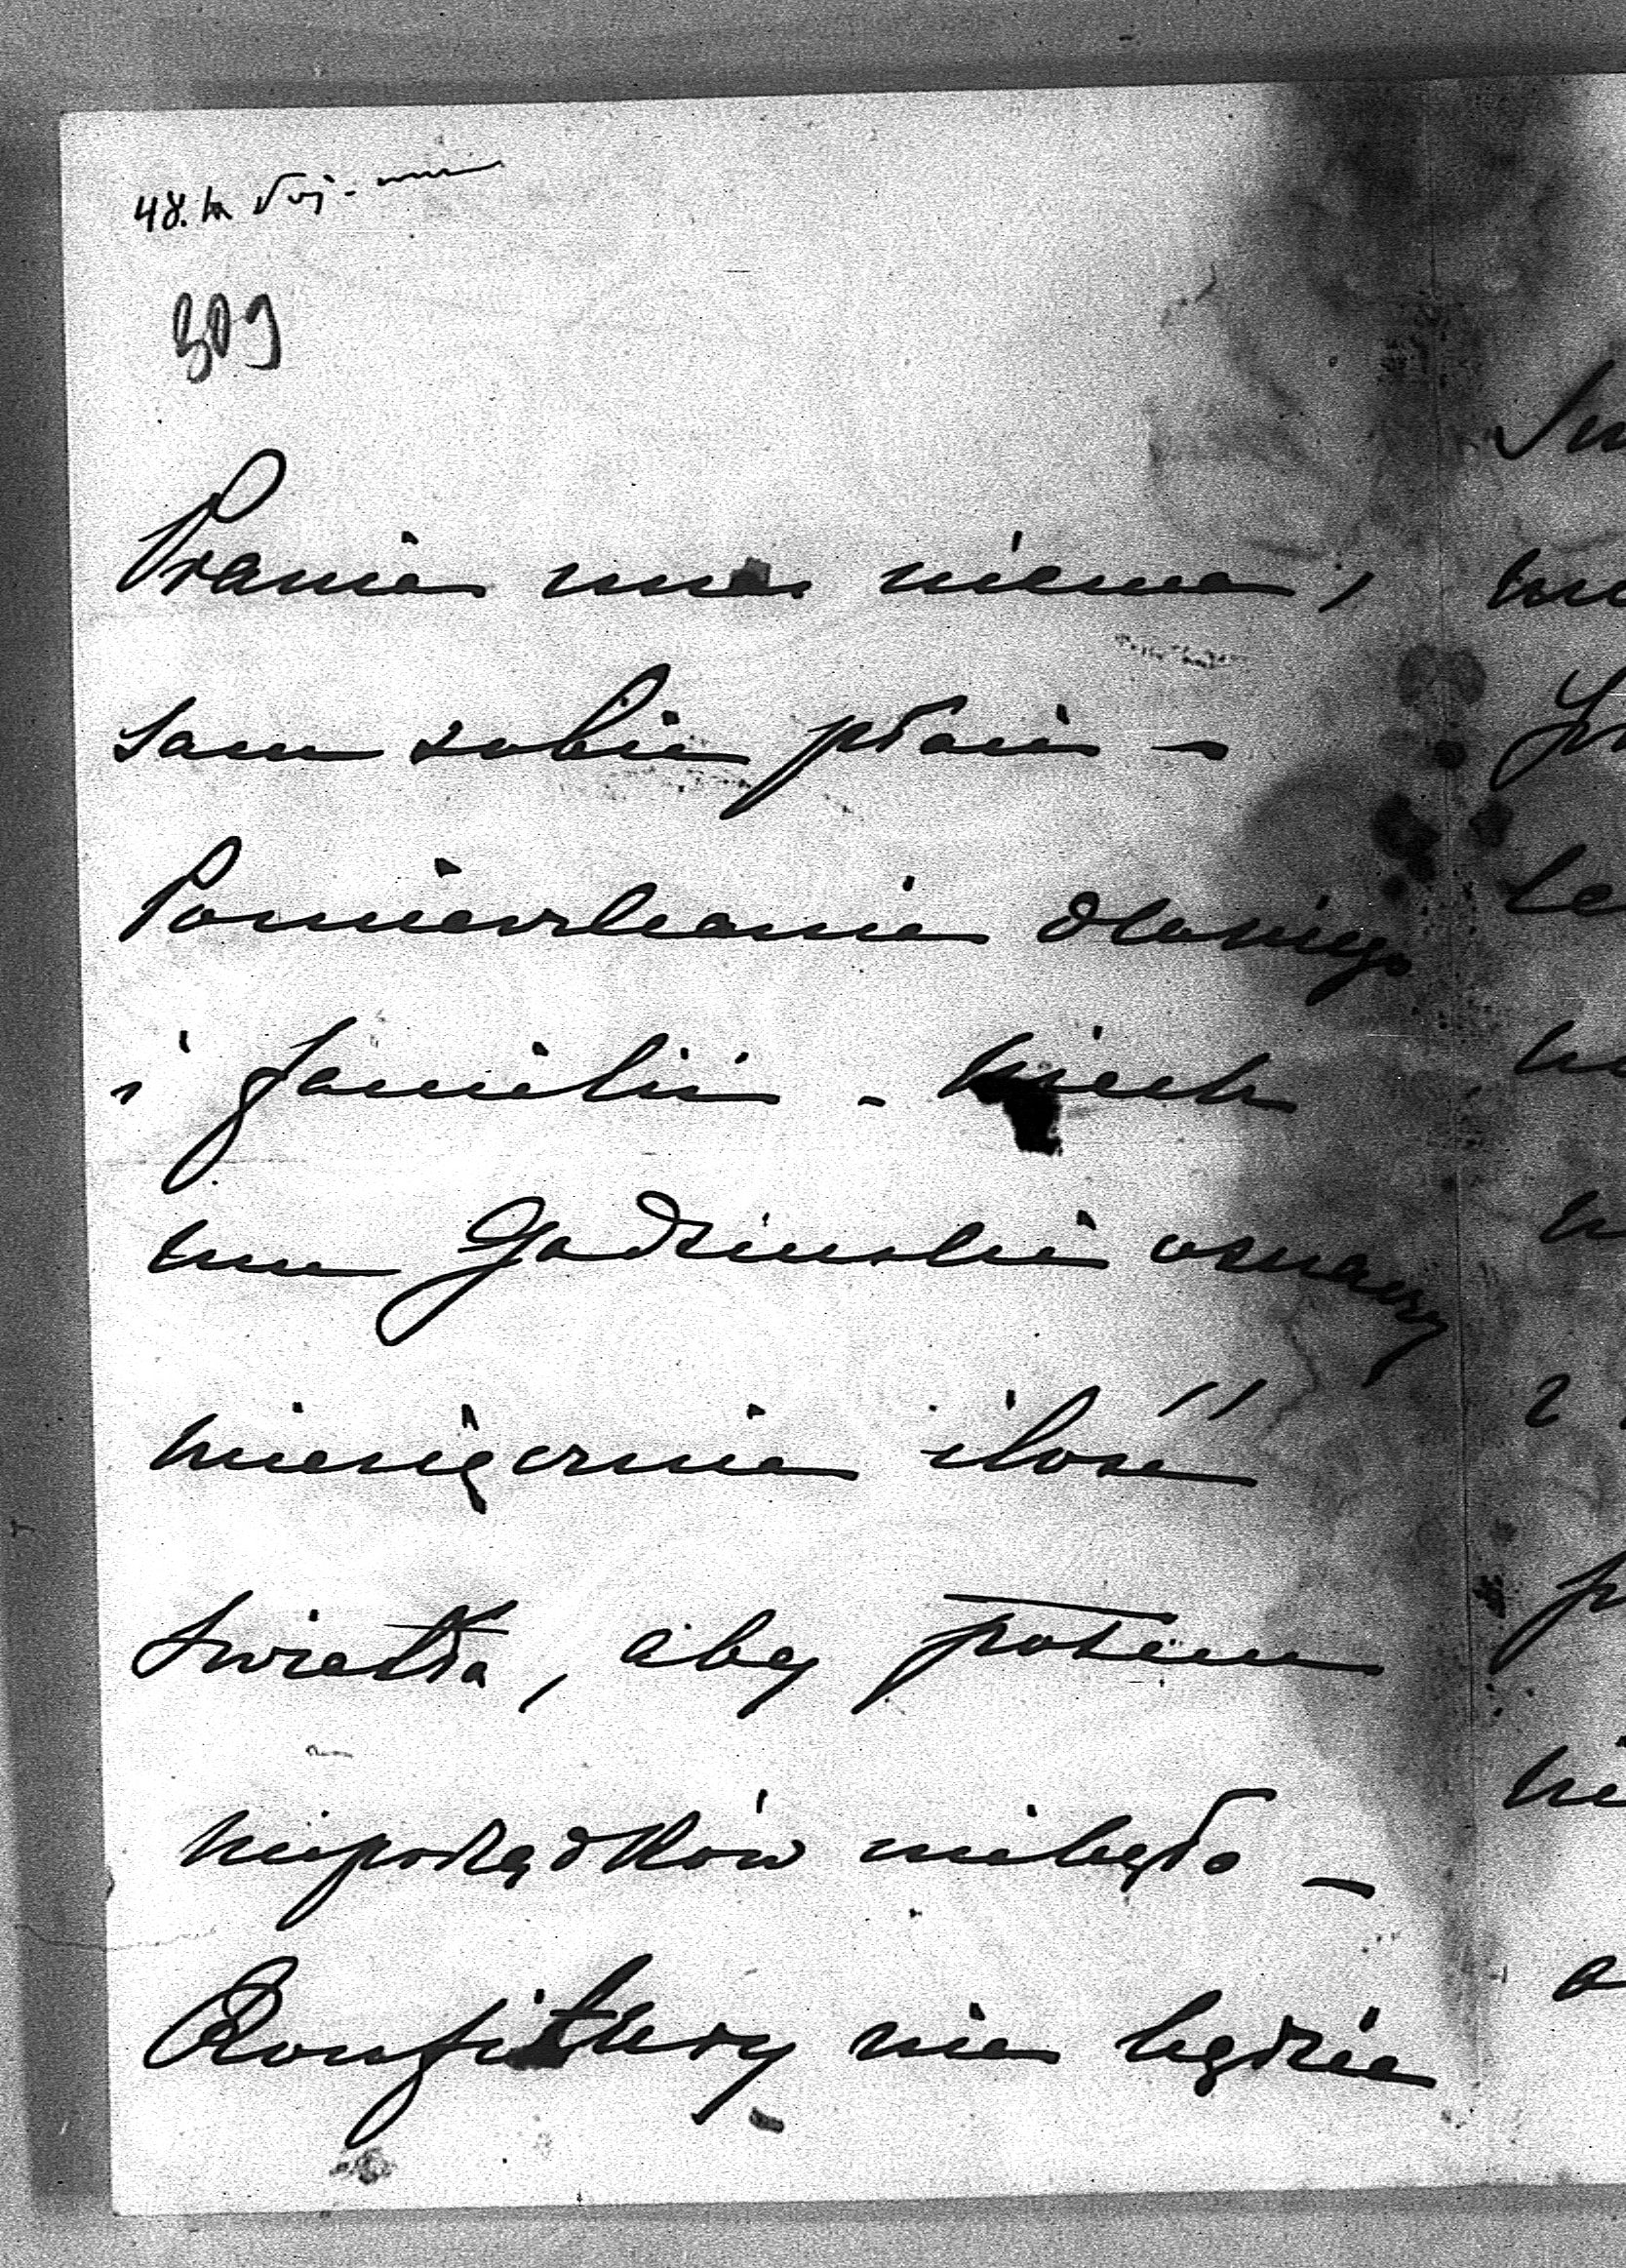 309
Prania nie niema,
sam sobie płaci –
Pomieszkanie dlaniego
i familii – niech
mu Godziński oznaczy
miesięcznie ilość
światła, aby potem
nieporządków niebyło –
Konfitury nie będzie